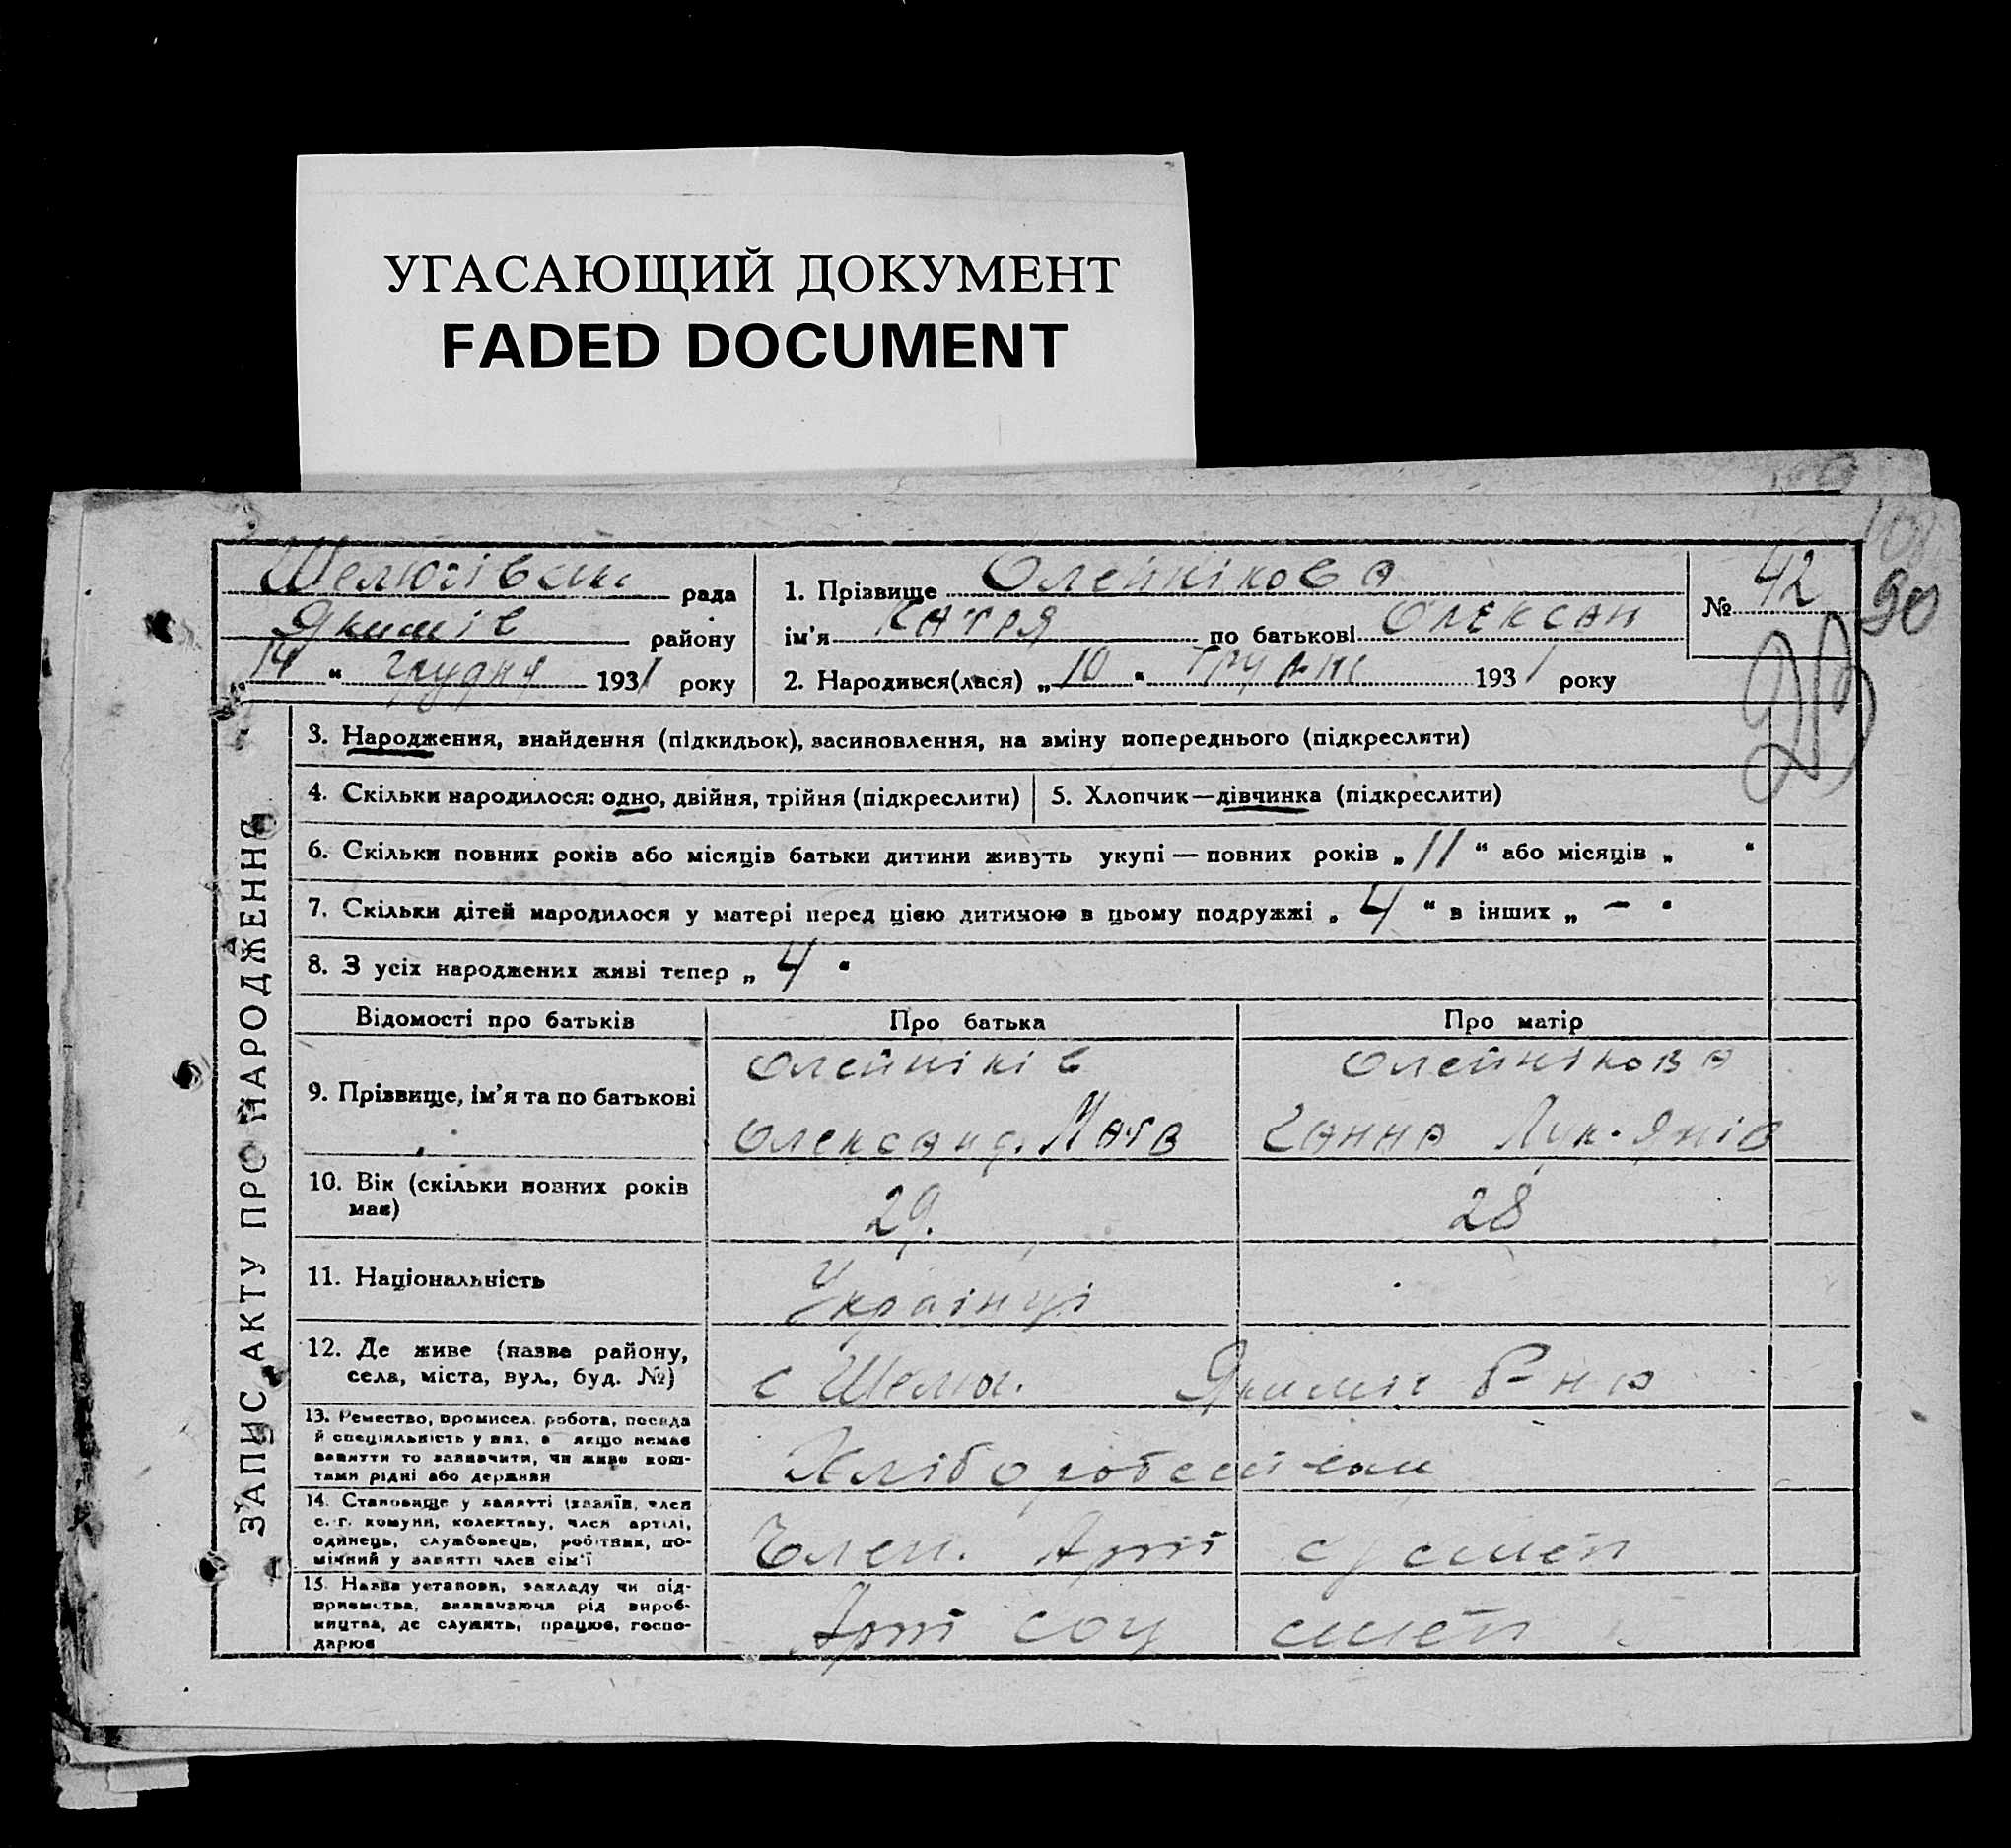 УГАСАЮЩИЙ ДОКУМЕНТ
FADED DOCUMENT
Шелюгівськ рада
Якимів району
„14“ грудня 1931 року
1. Прізвище Олейнікова
ім'я Катря по батькові Олексан
2. Народився(лася) „10“ грудня 1931 року
№ 42
90
ЗАПИС АКТУ ПРО НАРОДЖЕННЯ
3. Народження, знайдення (підкидьок), засиновлення, на зміну попереднього (підкреслити)
4. Скільки народилося: одно, двійня, трійня (підкреслити)
5. Хлопчик—дівчинка (підкреслити)
6. Скільки повних років або місяців батьки дитини живуть укупі — повних років „11“ або місяців „ “
7. Скільки дітей народилося у матері перед цією дитиною в цьому подружжі „4“ в інших „–“
8. З усіх народжених живі тепер „4“
Відомості про батьків Про батька Про матір
9. Прізвище, ім'я та по батькові
Олейніків
Олександ. Матв
Олейнікова
Ганна Лук'янів
10. Вік (скільки повних років
має)
29.
28
11. Національність
Українці
12. Де живе (назва району,
села, міста, вул., буд. №)
с Шелюг. Якимів р-на
13. Ремество, промисел, робота, посада
й спеціяльність у них, а якщо немає
заняття то зазначити, чи живе кош-
тами рідні або держави
Хлібороб
14. Становище у занятті (хазяїн, член
с.-г. комуни, колективу, член артілі,
одинець, службовець, робітник, по-
мічний у занятті член сім'ї
Член. Арті
15. Назва установи, закладу чи під-
приємства, зазначаючи рід вироб-
ництва, де служить, працює, госпо-
дарює
Арті соц